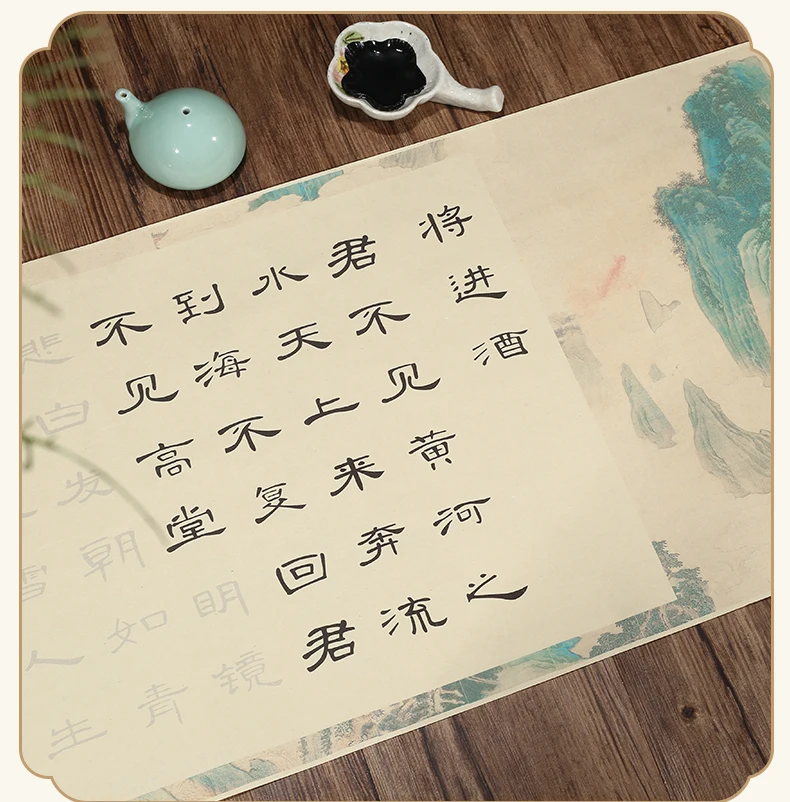 将进酒
君不见黄河之
水天上来奔流
到海不复回君
不见高堂明镜
悲白发朝如青
雪人生